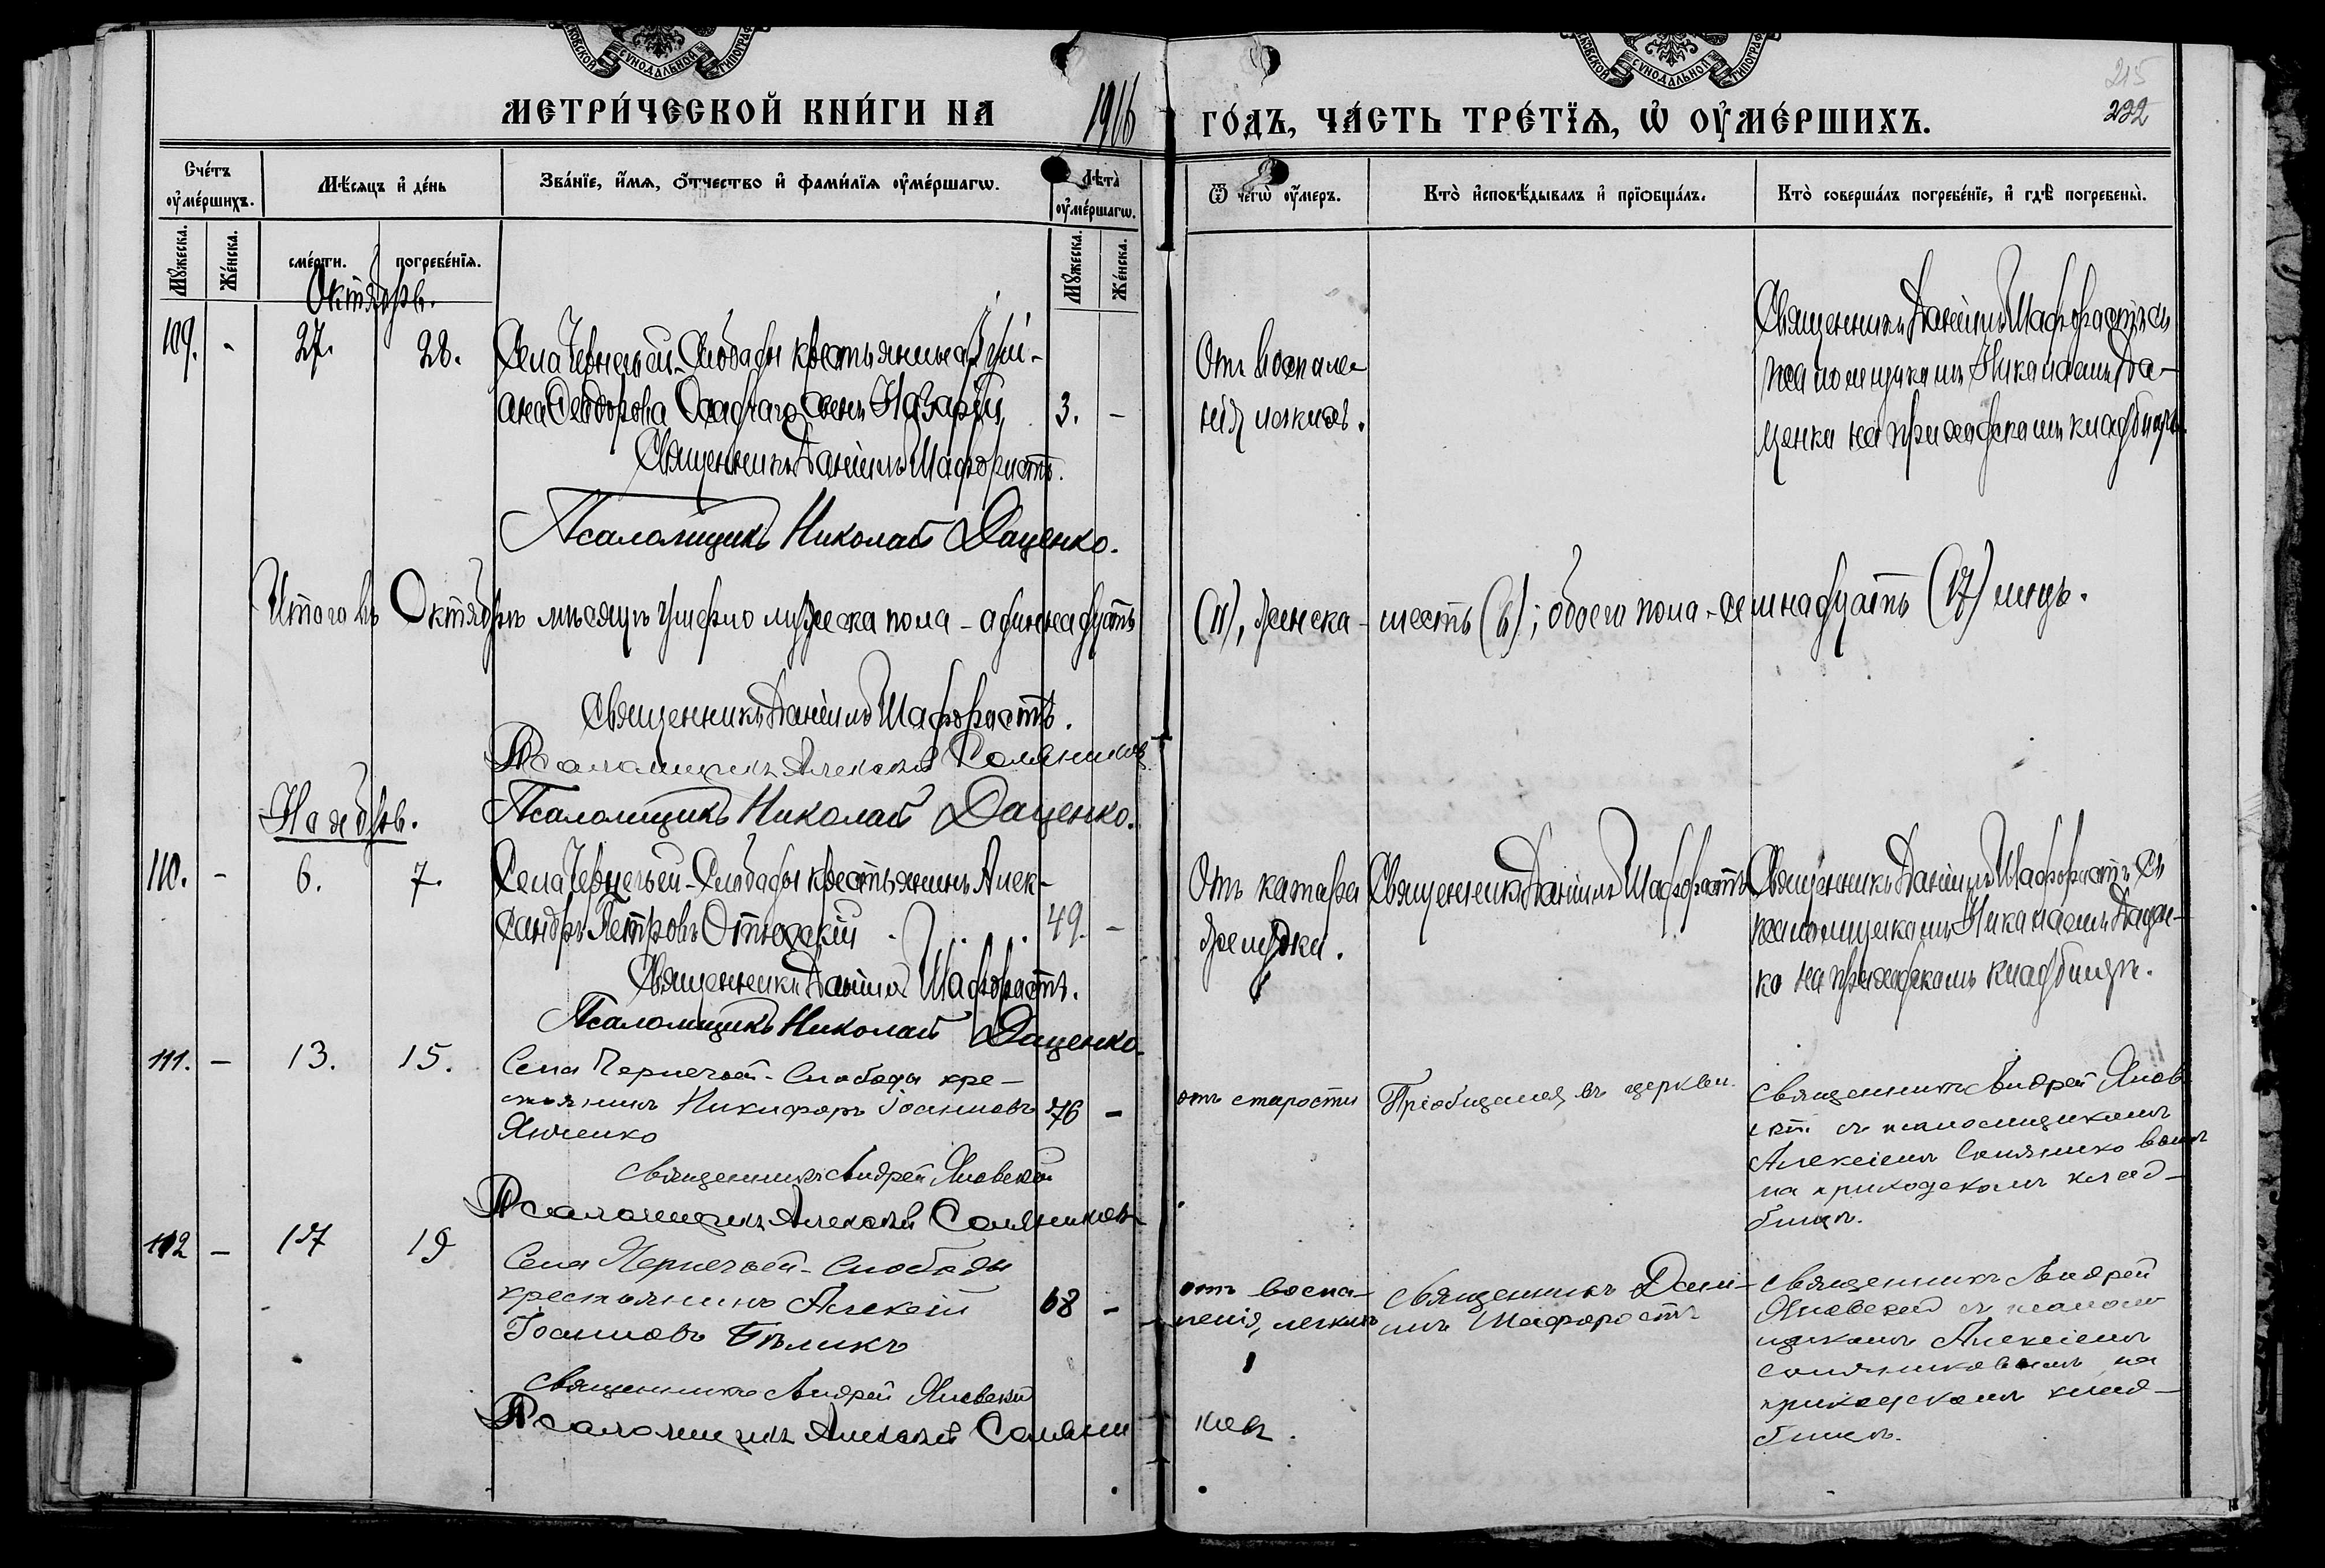 МОСКОВСКОЙ СѴНОДАЛЬНОЙ ТИПОГРАФ
МОСКОВСКОЙ СѴНОДАЛЬНОЙ ТИПОГРАФ
215
232
МЕТРИ́ЧЕСКОЙ КНИ́ГИ НА 1916 ГО́ДЪ, ЧА́СТЬ ТРЕ́ТЇѦ, Ѡ҆ ОУ҆МЕ́РШИХЪ.
Сче́тъ оу҆ме́ршихъ.
Мѣ́сяцъ и҆ де́нь
Зва́нїе, и҆́мѧ, ѻ҆́тчество и҆ фами́лїѧ оу҆ме́ршагѡ.
Лѣта̀ оу҆ме́ршагѡ.
Ѿ чегѡ̀ оу҆́меръ.
Кто̀ и҆сповѣ́дывалъ и҆ прїѡбща́лъ.
Кто̀ соверша́лъ погребе́нїе, и҆ гдѣ̀ погребены̀.
Мꙋ́жеска.
Же́нска.
сме́рти.
погребе́нїѧ.
Мꙋ́жеска.
Же́нска.
Октябрь.
109. - 27. 28.
Села Чернечьей-Слободы крестьянина
ана Ѳеодорова сынъ Назарій 3. -
Священникъ Даніилъ Шафоростъ.
Псаломщикъ Николай Даценко.
Отъ воспале-
нія легкихъ.
Священникъ Даніилъ Шафоростъ съ
псаломщикомъ Николаемъ Да-
ценко на приходскомъ кладбищѣ.
Итого въ Октябрѣ мѣсяцѣ умерло мужеска пола - одиннадцать (11), женска - шесть (6); обоего пола - семнадцать (17) лицъ.
Священникъ Даніилъ Шафоростъ.
Псаломщикъ Алексѣй Соляников
Псаломщикъ Николай Даценко.
Ноябрь.
110. - 6. 7.
Села Чернечьей-Слободы крестьянинъ Алек-
сандръ Петровъ 49. -
Священникъ Даніилъ Шафоростъ.
Псаломщикъ Николай Даценко.
Отъ катара
желудка.
Священникъ Даніилъ Шафоростъ
Священникъ Даніилъ Шафоростъ съ
псаломщикомъ Николаемъ Дацен-
ко на приходскомъ кладбищѣ.
111. - 13. 15.
Села Чернечьей-Слободы кре-
стьянинъ Никифоръ Іоанновъ 76 -
Янченко
Священникъ Андрей Яновскій
Псаломщикъ Алексѣй Соляников
отъ старости
Пріобщался въ церкви.
Священникъ Андрей Янов
скій съ псаломщикомъ
Алексіемъ Соляниковымъ
на приходскомъ клад-
бищѣ.
112 - 17 19
Села Чернечьей-Слободы
крестьянинъ Алексій 68 -
Іоанновъ Бѣликъ
Священникъ Андрей Яновскій
Псаломщикъ Алексѣй Соляни
ковъ.
отъ воспа-
ленія легкихъ
Священникъ Дані-
илъ Шафоростъ
Священникъ Андрей
Яновский съ псалом
щикомъ Алексіемъ
Соляниковымъ на
приходскомъ клад-
бищѣ.